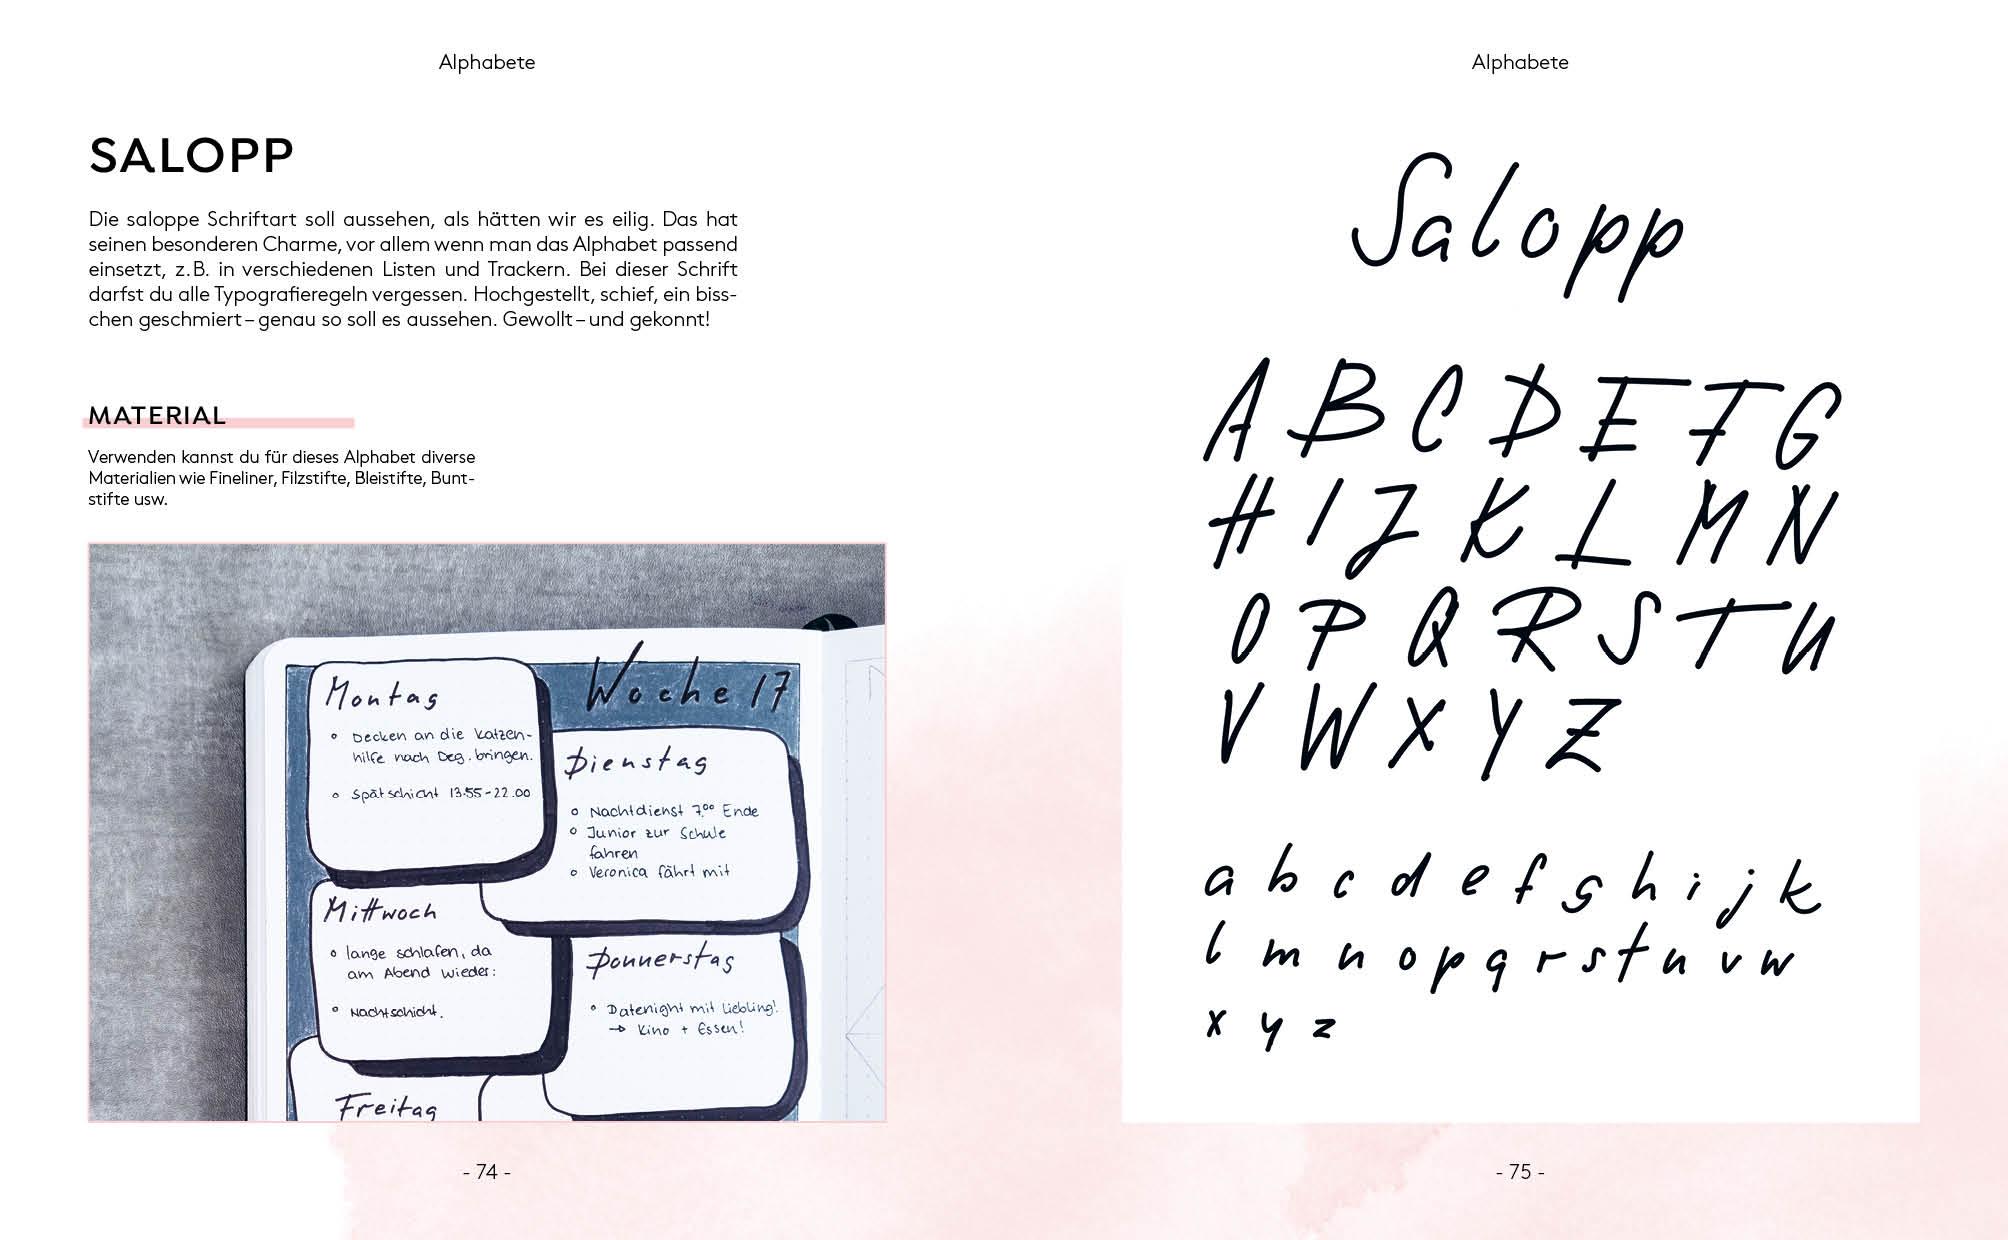 Alphabete
SALOPP
Die saloppe Schriftart soll aussehen, als hätten wir es eilig. Das hat
seinen besonderen Charme, vor allem wenn man das Alphabet passend
einsetzt, z.B. in verschiedenen Listen und Trackern. Bei dieser Schrift
darfst du alle Typografieregeln vergessen. Hochgestellt, schief, ein biss-
chen geschmiert – genau so soll es aussehen. Gewollt – und gekonnt!
MATERIAL
Verwenden kannst du für dieses Alphabet diverse
Materialien wie Fineliner, Filzstifte, Bleistifte, Bunt-
stifte usw.
Woche 17
Montag
• Decken an die Katzen-
hilfe nach Deg. bringen.
• Spätschicht 13.55-22.00
Dienstag
• Nachtdienst 7.00 Ende
• Junior zur Schule
fahren
• Veronica fährt mit
Mittwoch
• lange schlafen, da
am Abend wieder:
• Nachtschicht.
Donnerstag
• Datenight mit Liebling!
→ Kino + Essen!
Freitag
- 74 -
Alphabete
Salopp
A B C D E F G
H I J K L M N
O P Q R S T U
V W X Y Z
a b c d e f g h i j k
l m n o p q r s t u v w
x y z
- 75 -